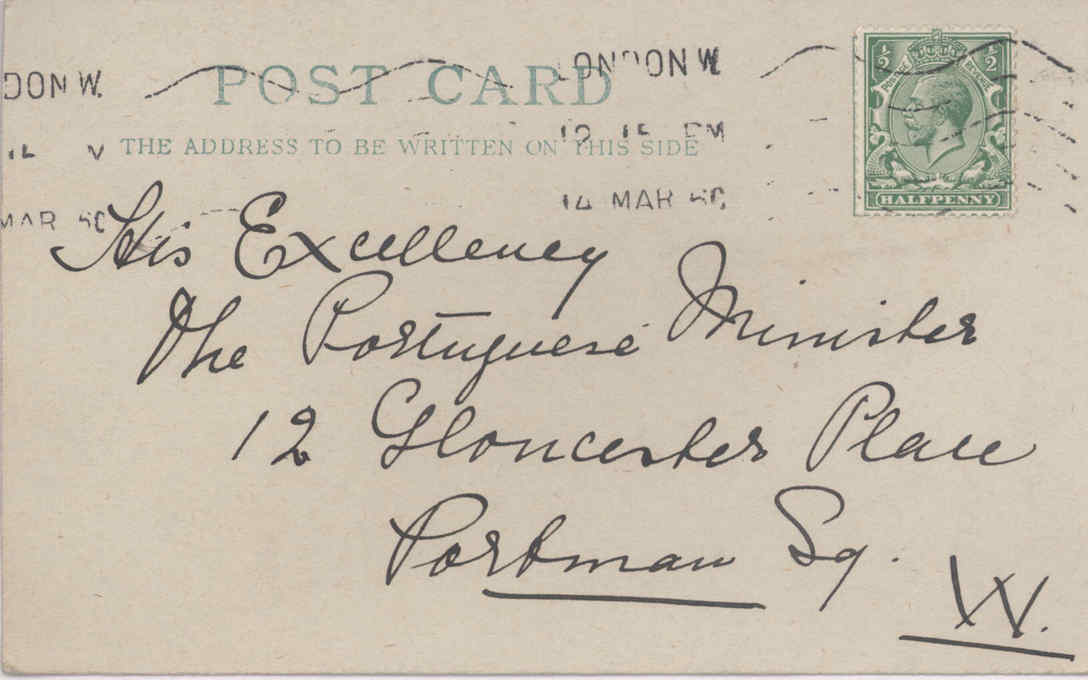 DON W.
LONDON W
POST CARD
12 15 PM
THE ADDRESS TO BE WRITTEN ON THIS SIDE
14 MAR
MAR
½ ½
POSTAGE REVENUE
HALFPENNY
His Excellency
The Portuguese Minister
12 Gloucester Place
Portman Sq.
W.